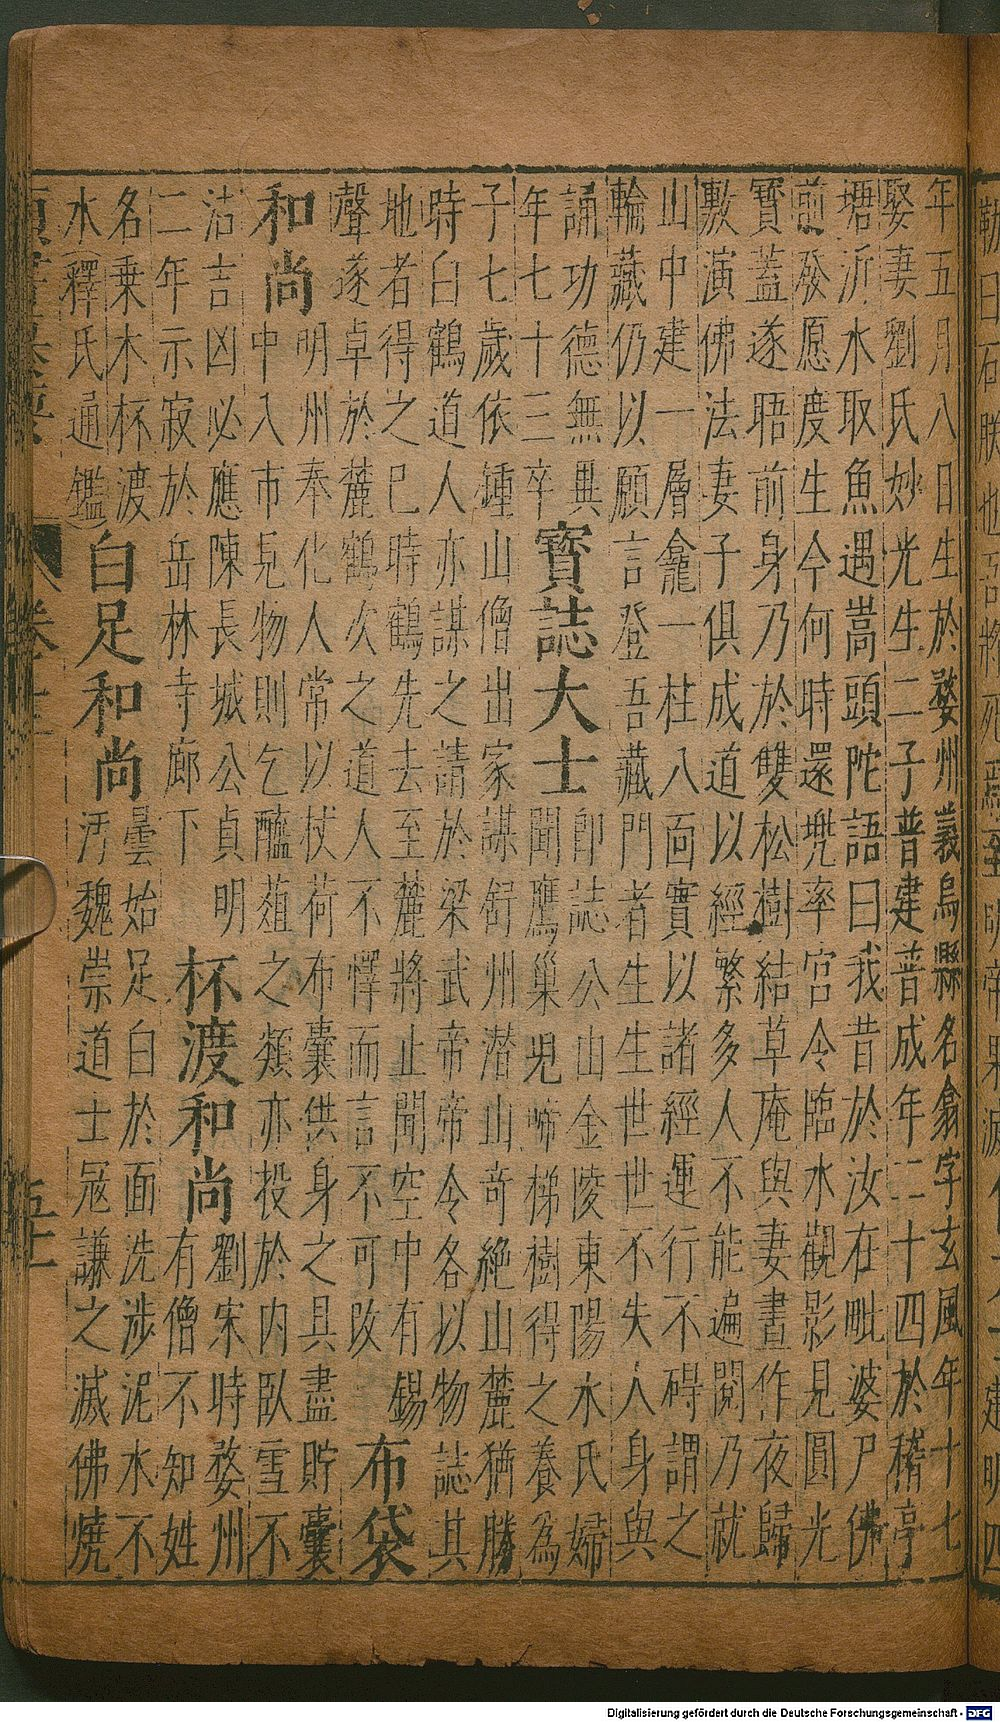 年五月八日生於婺州義烏縣名翕字玄風年十七
娶妻劉氏妙光生二子普建普成年二十四於稽亭
塘沂水取魚遇嵩頭陀語曰我昔於汝在毗婆尸佛
前發愿度生今何時還兜率宮令臨水觀影見圓光
寳蓋遂晤前身乃於雙松樹結草庵與妻晝作夜歸
敷演佛法妻子俱成道以經繁多人不能遍閱乃就
山中建一層龕一柱八面實以諸經運行不碍謂之
輪藏仍以願言登吾藏門者生生世世不失人身與
誦功德無異
年七十三卒
寳誌大士
即誌公山金陵東陽水氏婦
聞鷹巢児啼梯樹得之養為
子七歲依鍾山僧出家謀舒州潛山奇絶山麓猶勝
時白鶴道人亦謀之請於梁武帝帝令各以物誌其
地者得之巳時鶴先去至麓將止聞空中有錫
聲遂卓於麓鶴次之道人不懌而言不可改
布袋
和尚
明州奉化人常以杖荷布囊供身之具盡貯囊
中入市見物則乞醯葅之類亦投於內臥雪不
沾吉凶必應陳長城公貞明
二年示寂於岳林寺廊下
杯渡和尚
劉宋時婺州
有僧不知姓
名乗木杯渡
水(釋氏通鑑)
白足和尚
曇始足白於面洗涉泥水不
汚魏崇道士寇謙之滅佛燒
Digitalisierung gefördert durch die Deutsche Forschungsgemeinschaft - DFG